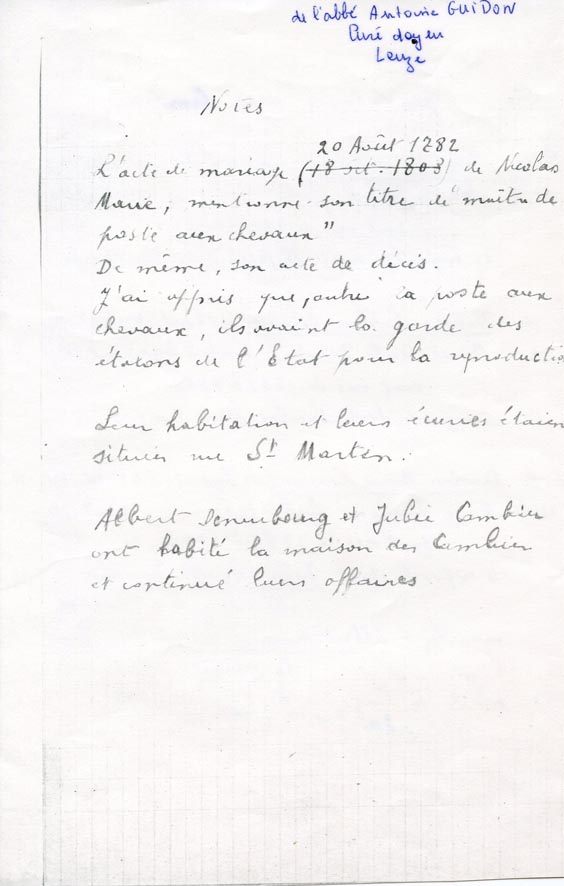 de l'abbé Antoine GUIDON
Curé doyen
Leuze
Notes
20 Août 1782
L'acte de mariage (18 oct. 1803) de Nicolas
Marie, mentionne son titre de "maître de
poste aux chevaux"
De même, son acte de décès.
J'ai appris que, outre la poste aux
chevaux, ils avaient la garde des
étalons de l'Etat pour la reproductio
Leur habitation et leurs écuries étaien
situées rue St Martin.
Albert Deneubourg et Julie Cambier
ont habité la maison des Cambier
et continué leurs affaires.